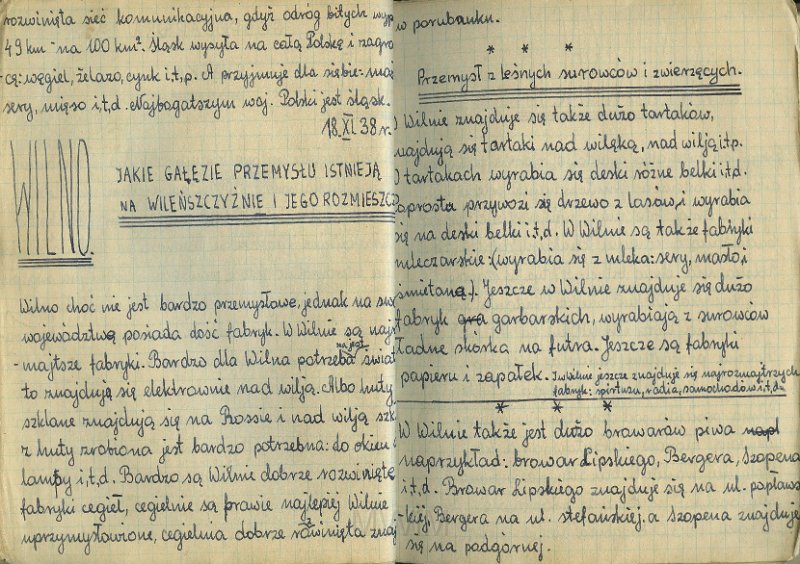 rozwinięta sieć komunikacyjna, gdyż odróg bitych wyp
49 km na 100 km². Śląsk wysyła na całą Polskę i zagra
-cą: węgiel, żelazo, cynk i,t,p. A przyjmuje dla siebie: mąk
sery, mięso i,t,d. Najbagatszym woj. Polski jest śląsk.
18.XI.38 r.
WILNO.
JAKIE GAŁĘZIE PRZEMYSŁU ISTNIEJĄ
NA WILEŃSZCZYŹNIE I JEGO ROZMIESZCZ
Wilno choć nie jest bardzo przemysłowe, jednak na swo
województwą posiada dość fabryk. W Wilnie są najr
-majtsze fabryki. Bardzo dla Wilna potrzeba na jest świat
to znajdują się elektrownie nad wilją. Albo huty
szklane znajdują się na Rossie i nad wilją szk
z huty zrobiona jest bardzo potrzebna: do okien i
lampy i,t,d. Bardzo są Wilnie dobrze rozwinięte
fabryki cegieł, cegielnie są prawie najlepiej Wilnie
uprzymysłowione, cegielnia dobrze rozwinięta znaj
w porubanku.
* * *
Przemysł z leśnych surowców i zwierzęcych.
Wilnie znajduje się także dużo tartaków,
najdują się tartaki nad wilęką, nad wilją i.t.p.
tartakach wyrabia się deski różne belki i.t.d.
aprosta przywozi się drzewo z lasów, i wyrabia
się na deski belki i.t,d. W Wilnie są także fabryki
mleczarskie: (wyrabia się z mleka: sery, masło, i
śmietaną.). Jeszcze w Wilnie znajduje się dużo
fabryk gra garbarskich, wyrabiają z surowców
ładne skórka na futra. Jeszcze są fabryki
papieru i zapałek. I w Wilnie jeszcze znajduje się najroznajtrzych
fabryk: spirtusu, radia, samochodów i,t,d.
* * *
W Wilnie także jest dużo browarów piwa napl
naprzykład: browar Lipskiego, Bergera, Szopena
i,t,d. Browar Lipskiego znajduje się na ul. popławs
-kiej, Bergera na ul. stefańskiej. a szopena znajduje
się na podgórnej.